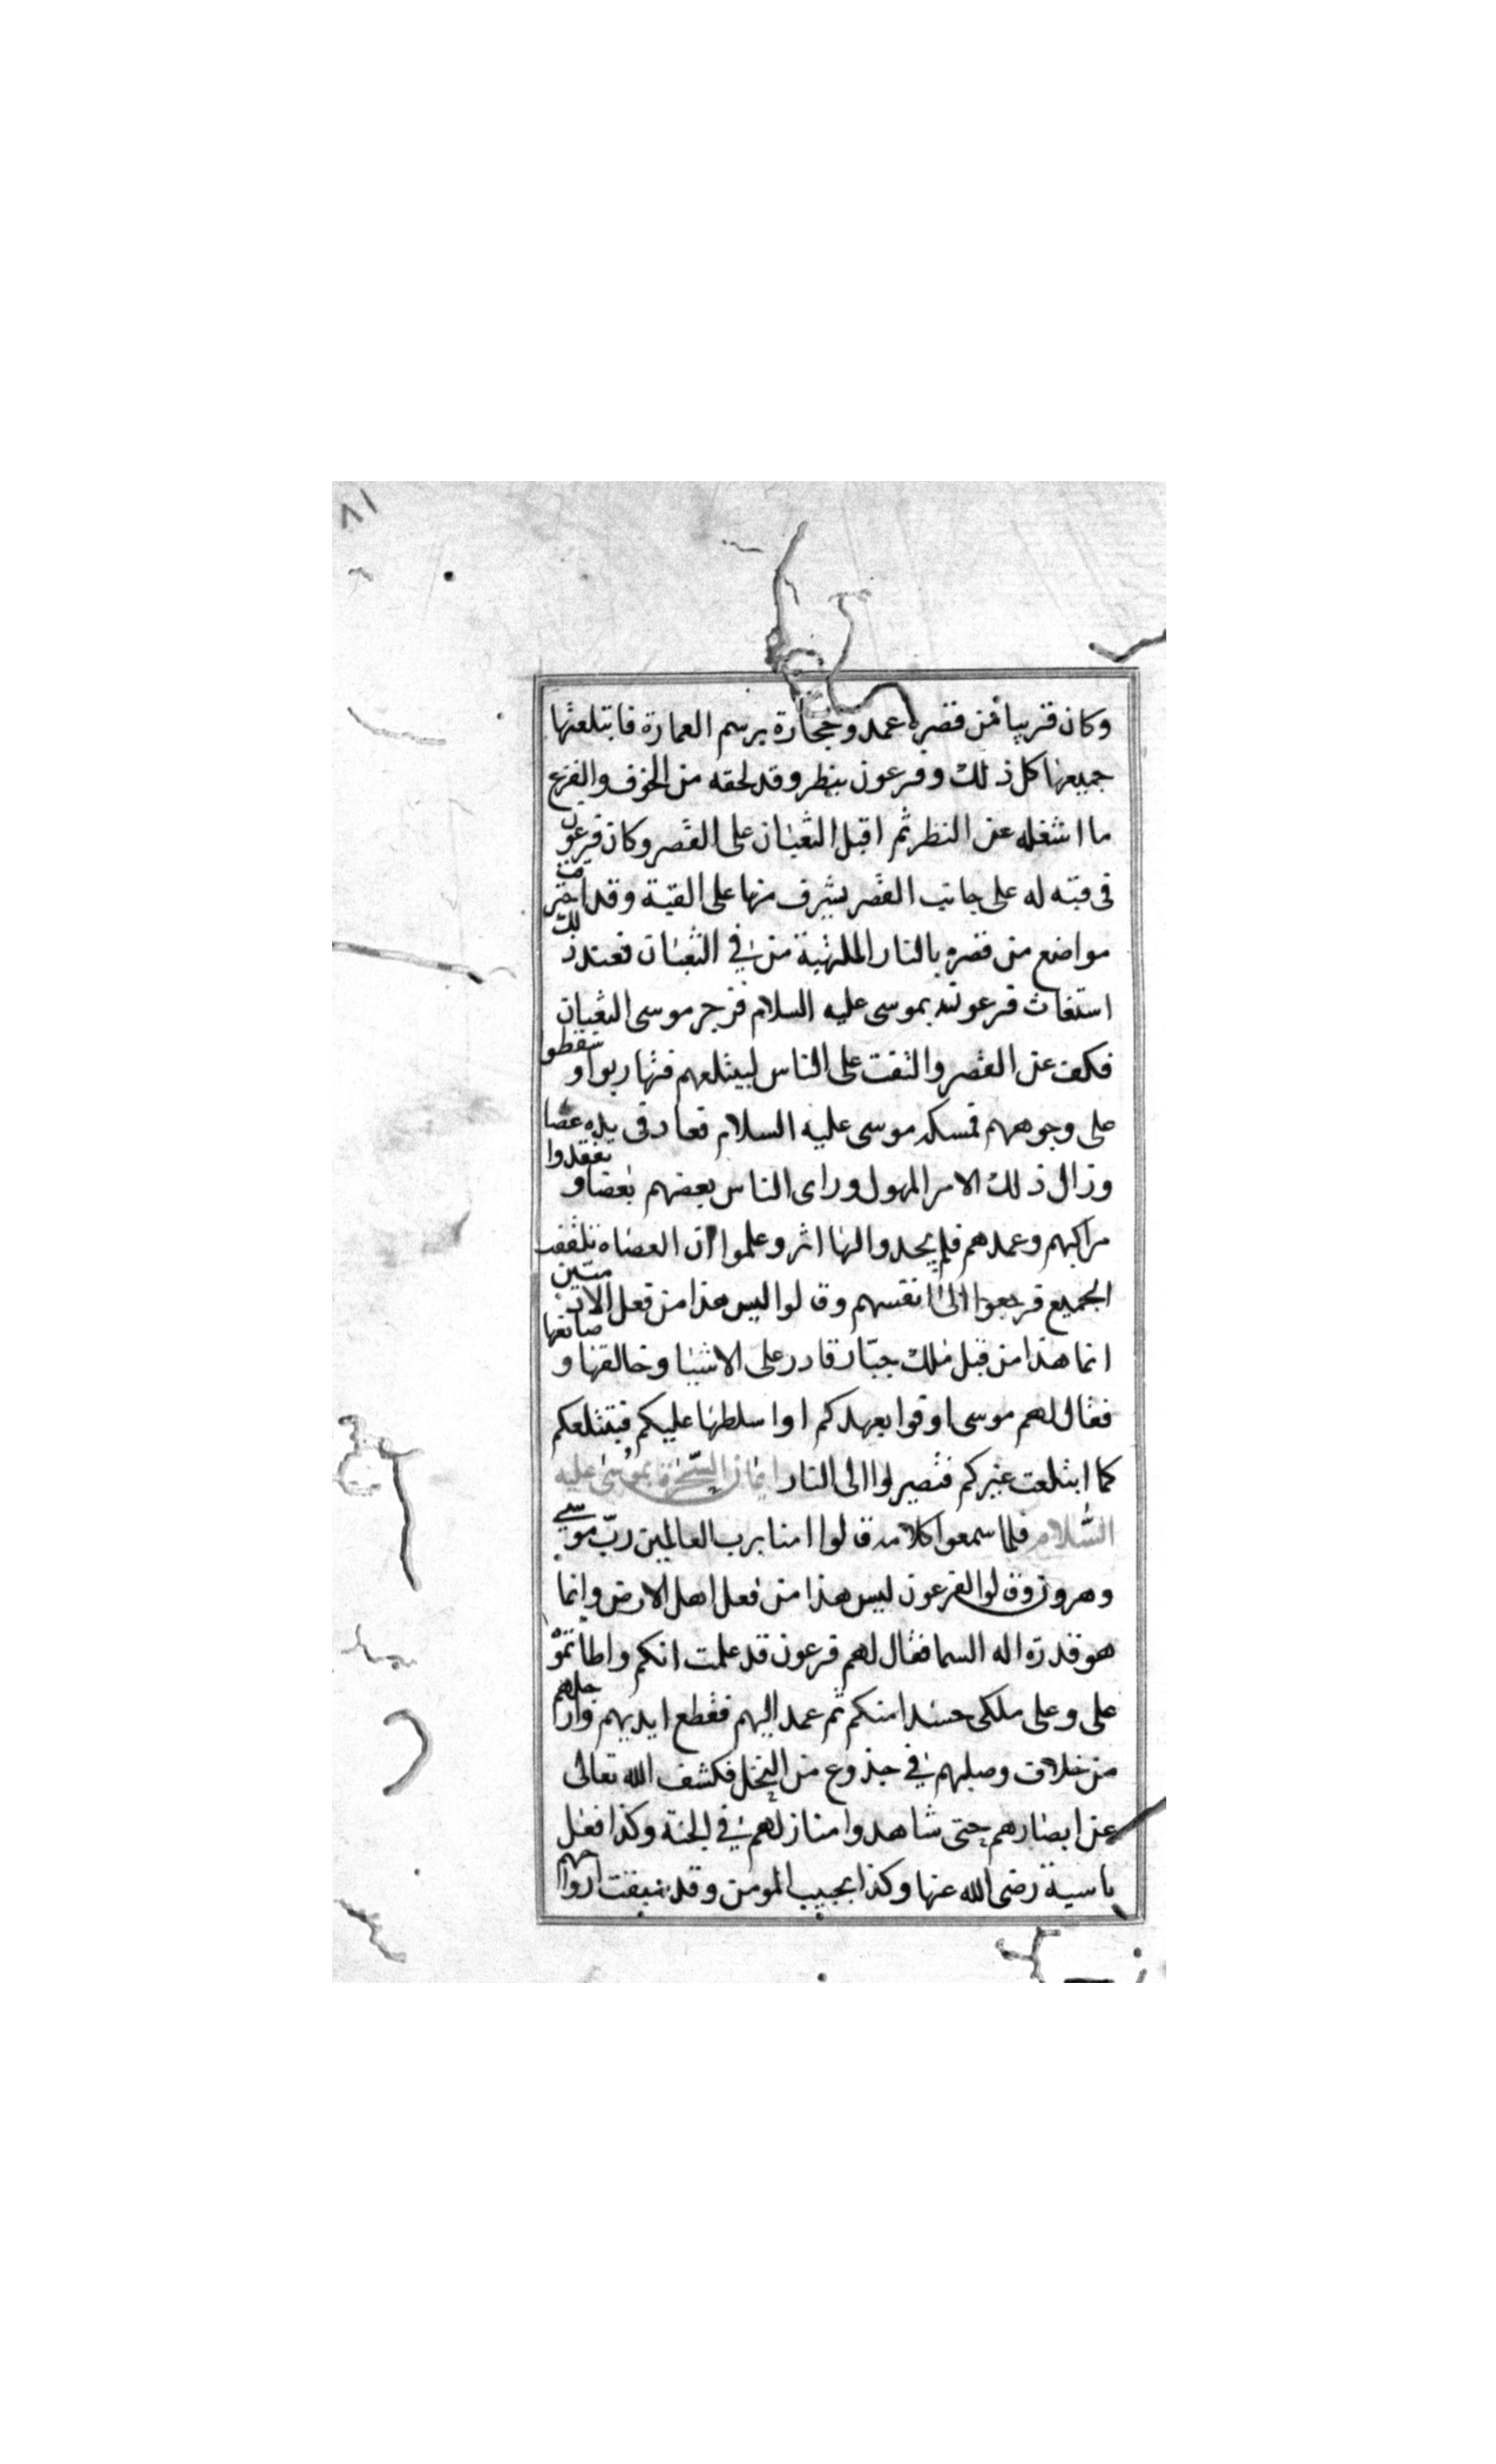 ٨١
وكان قريبا من قصره عمد وحجارة برسم العمارة فابتلعتها
جميعها كل ذلك وفرعون ينظر وقد لحقه من الخوف والفزع
ما اشغله عن النظر ثم اقبل الثعبان على القصر وكان فرعون
فى قبته له على جانب القصر يشرف منها على القبة وقد احترقت
مواضع من قصره بالنار الملتهبة من في الثعبان فعند ذلك
استغاث فرعون بموسى عليه السلام فزجر موسى الثعبان
فكف عن القصر والتفت على الناس ليبتلعهم فتهاربوا وسقطوا
على وجوههم فمسكه موسى عليه السلام فعاد فى يده عصا
وزال ذلك الامر المهول وراى الناس بعضهم بعضا وتفقدوا
مراكبهم وعمدهم فلم يجدوا لها اثر وعلموا ان العصاه تلقفت
الجميع فرجعوا الى انفسهم وقالوا ليس هذا من فعل الادميين
انما هذا من قبل ملك جبّار قادر على الاشيا وخالقها وصانعها
فقال لهم موسى اوفوا بعهدكم او اسلطها عليكم فتبتلعكم
كما ابتلعت غيركم فتصيروا الى النار ايمان السّحرة بموسى عليه
السّلام فلما سمعوا كلامه قالوا امنا برب العالمين ربّ موسى
وهرون وقالوا لفرعون ليس هذا من فعل اهل الارض وانما
هو قدرة اله السما فقال لهم فرعون قد علمت انكم واطأتموه
على وعلى ملكى حسدا منكم ثم عمد اليهم فقطع ايديهم وارجلهم
من خلاف وصلبهم في جذوع من النخل فكشف الله تعالى
عن ابصارهم حتى شاهدوا منازلهم في الجنة وكذا فعل
باسية رضى الله عنها وكذا بحبيب المومن وقد ارواحهم